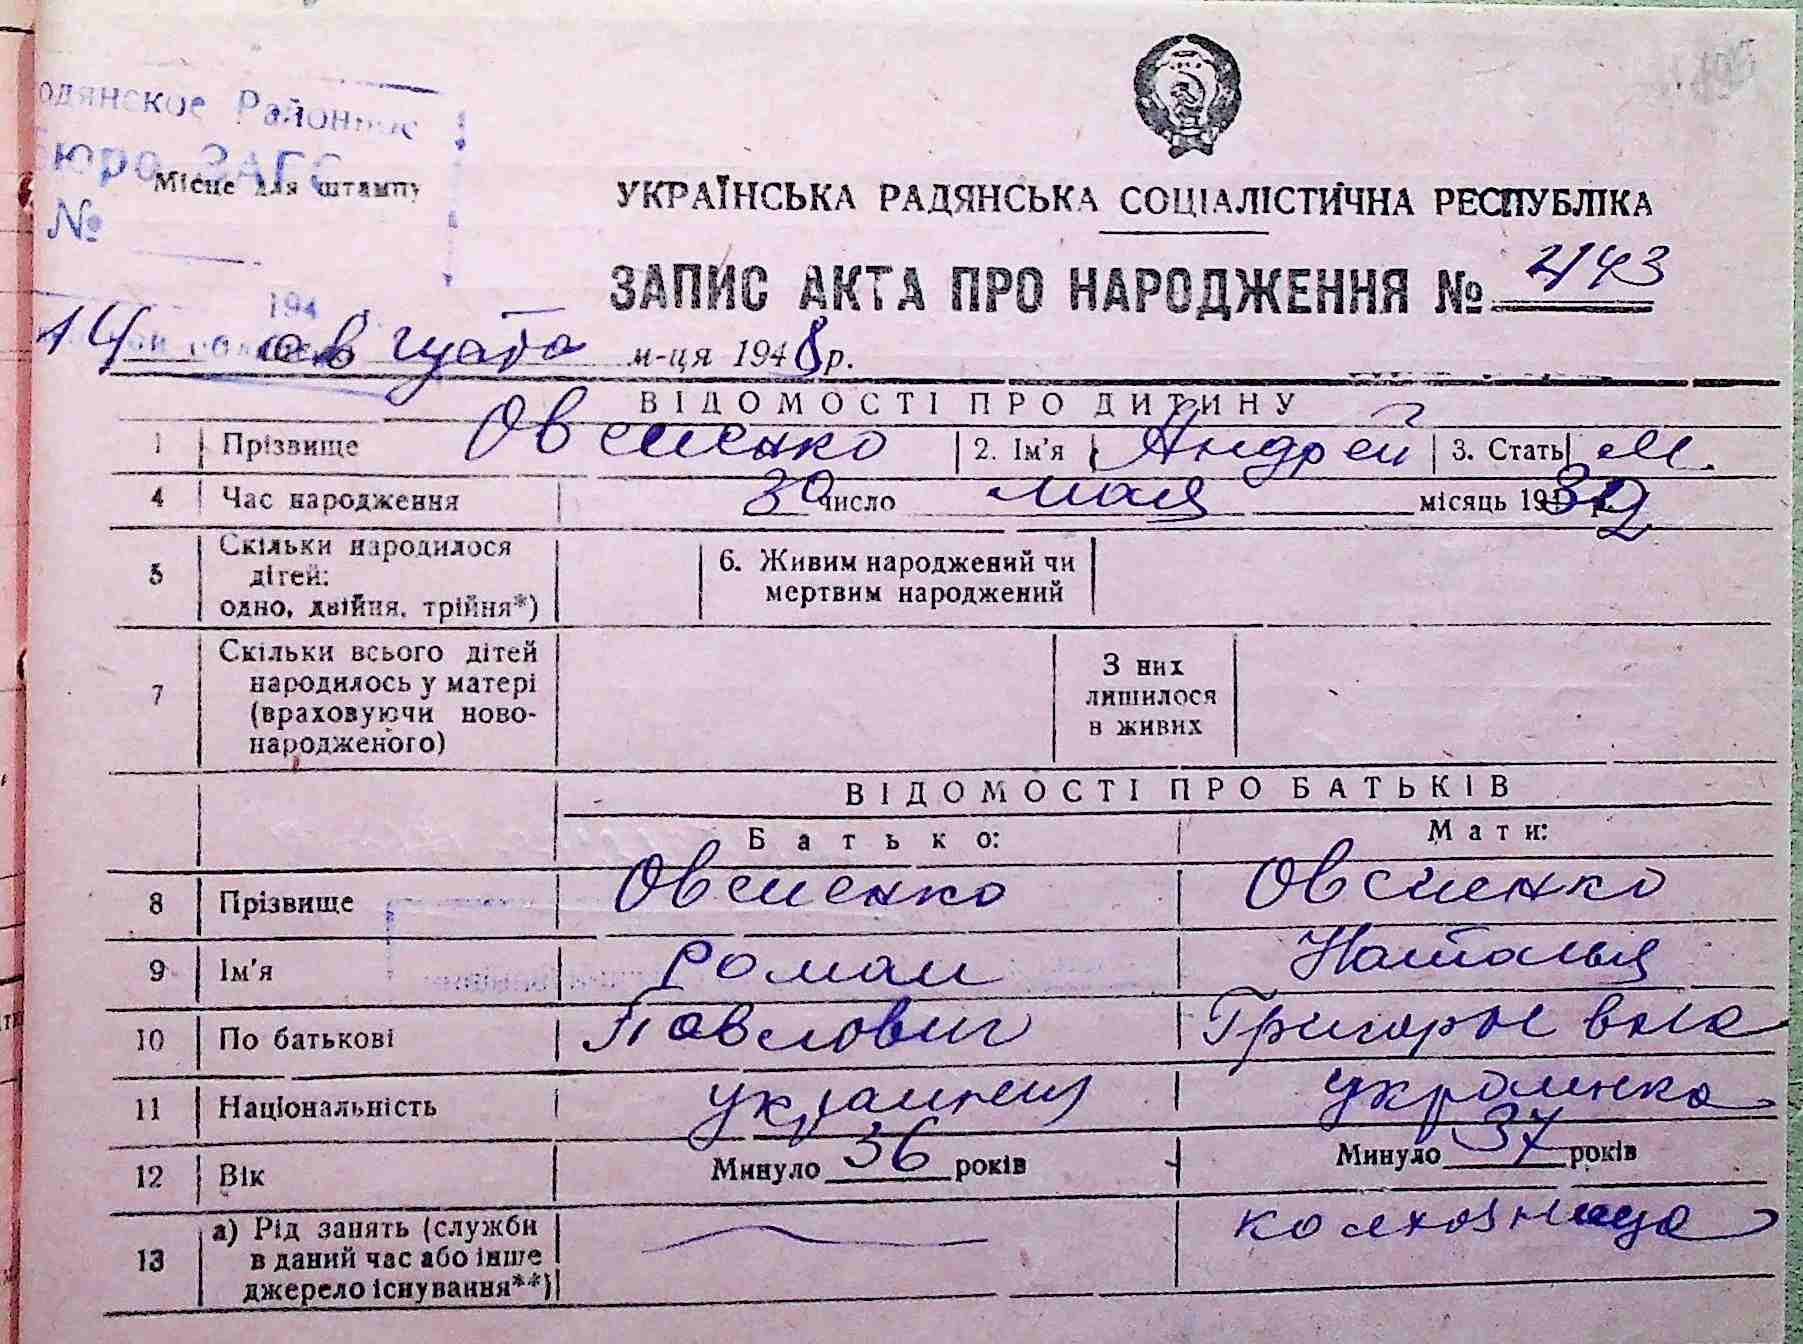 одянское Районное
бюро ЗАГС
Місце для штампу
№
194
УКРАЇНСЬКА РАДЯНСЬКА СОЦІАЛІСТИЧНА РЕСПУБЛІКА
ЗАПИС АКТА ПРО НАРОДЖЕННЯ № 2143
14 августа м-ця 1948 р.
ВІДОМОСТІ ПРО ДИТИНУ
1 Прізвище Овсиенко 2. Ім'я Андрей 3. Стать М.
4 Час народження 30 число мая місяць 1932
5 Скільки народилося
дітей:
одно, двійня, трійня*)
6. Живим народжений чи
мертвим народжений
7 Скільки всього дітей
народилось у матері
(враховуючи ново-
народженого)
З них
лишилося
в живих
ВІДОМОСТІ ПРО БАТЬКІВ
Батько: Мати:
8 Прізвище Овсиенко Овсиенко
9 Ім'я Роман Наталья
10 По батькові Павлович Григорьевна
11 Національність украинец украинка
12 Вік Минуло 36 років Минуло 37 років
13 а) Рід занять (служби
в даний час або інше
джерело існування**)
колхозница